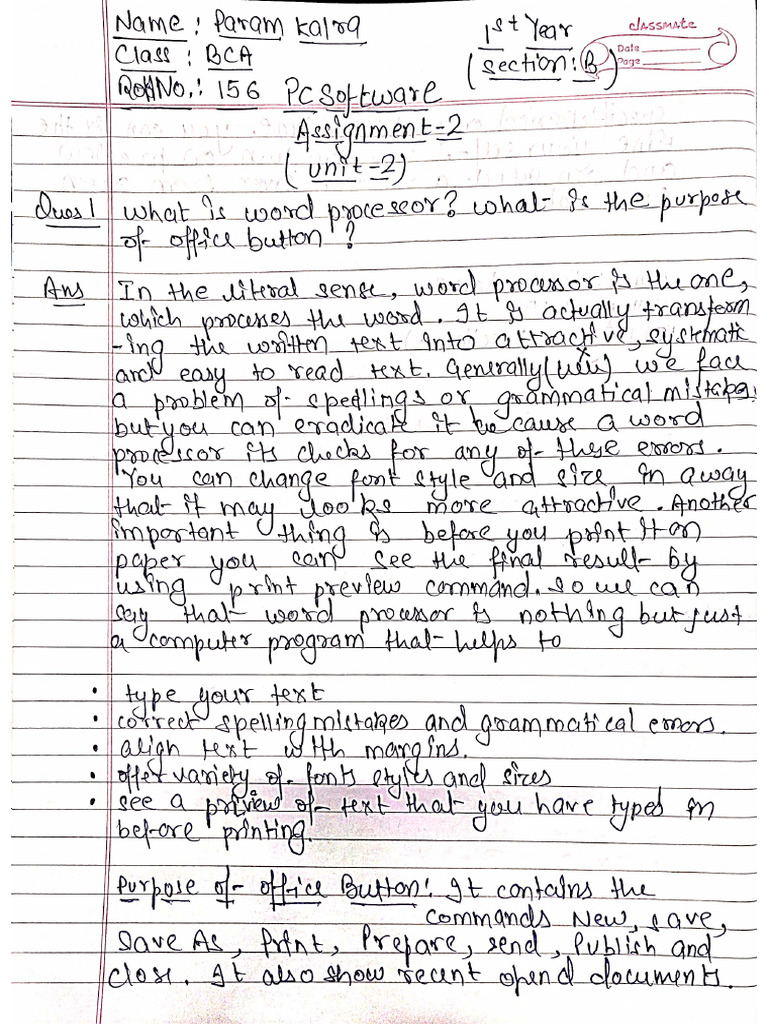 Name : Param Kalra
1st Year
classmate
Class : BCA
(section : B)
Date
Page
Roll No. : 156
PC Software
Assignment-2
(unit-2)
Ques 1 what is word processor? what is the purpose
of office button ?
Ans In the literal sense, word processor is the one,
which processes the word. It is actually transform
-ing the written text into attractive, systematic
and easy to read text. Generally we face
a problem of spellings or grammatical mistakes
but you can eradicate it because a word
processor its checks for any of these errors.
You can change font style and size in a way
that it may looks more attractive. Another
important thing is before you print it on
paper you can see the final result by
using print preview command. so we can
say that word processor is nothing but just
a computer program that helps to
• type your text
• correct spelling mistakes and grammatical errors.
• align text with margins.
• offer variety of fonts styles and sizes
• see a preview of text that you have types in
before printing.
Purpose of office Button: It contains the
commands New, save,
Save As, Print, Prepare, send, Publish and
close. It also show recent opend documents.